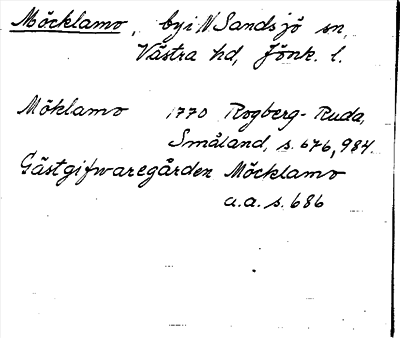 Möcklamo, by i N. Sandsjö sn,
Västra hd, Jönk. l.
Möklamo 1770 Rogberg-Ruda,
Småland, s. 676, 984.
Gästgifwaregården Möcklamo
a.a. s. 686